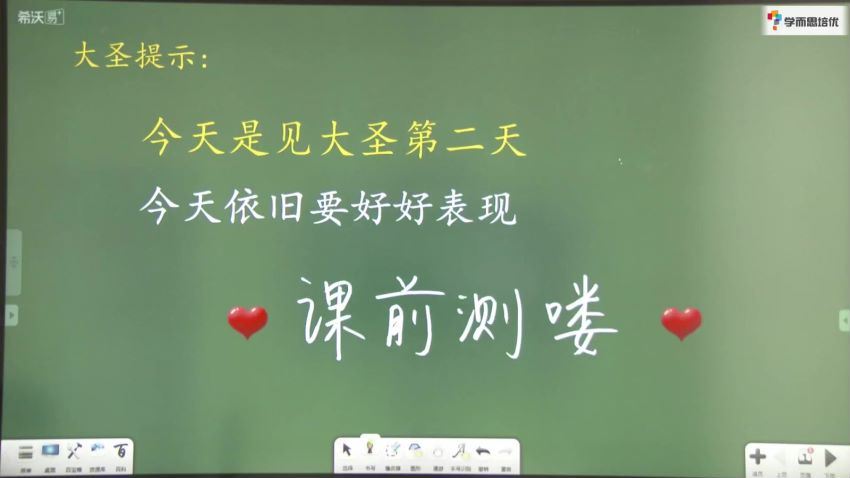 希沃易+
学而思培优
大圣提示：
今天是见大圣第二天
今天依旧要好好表现
课前测喽